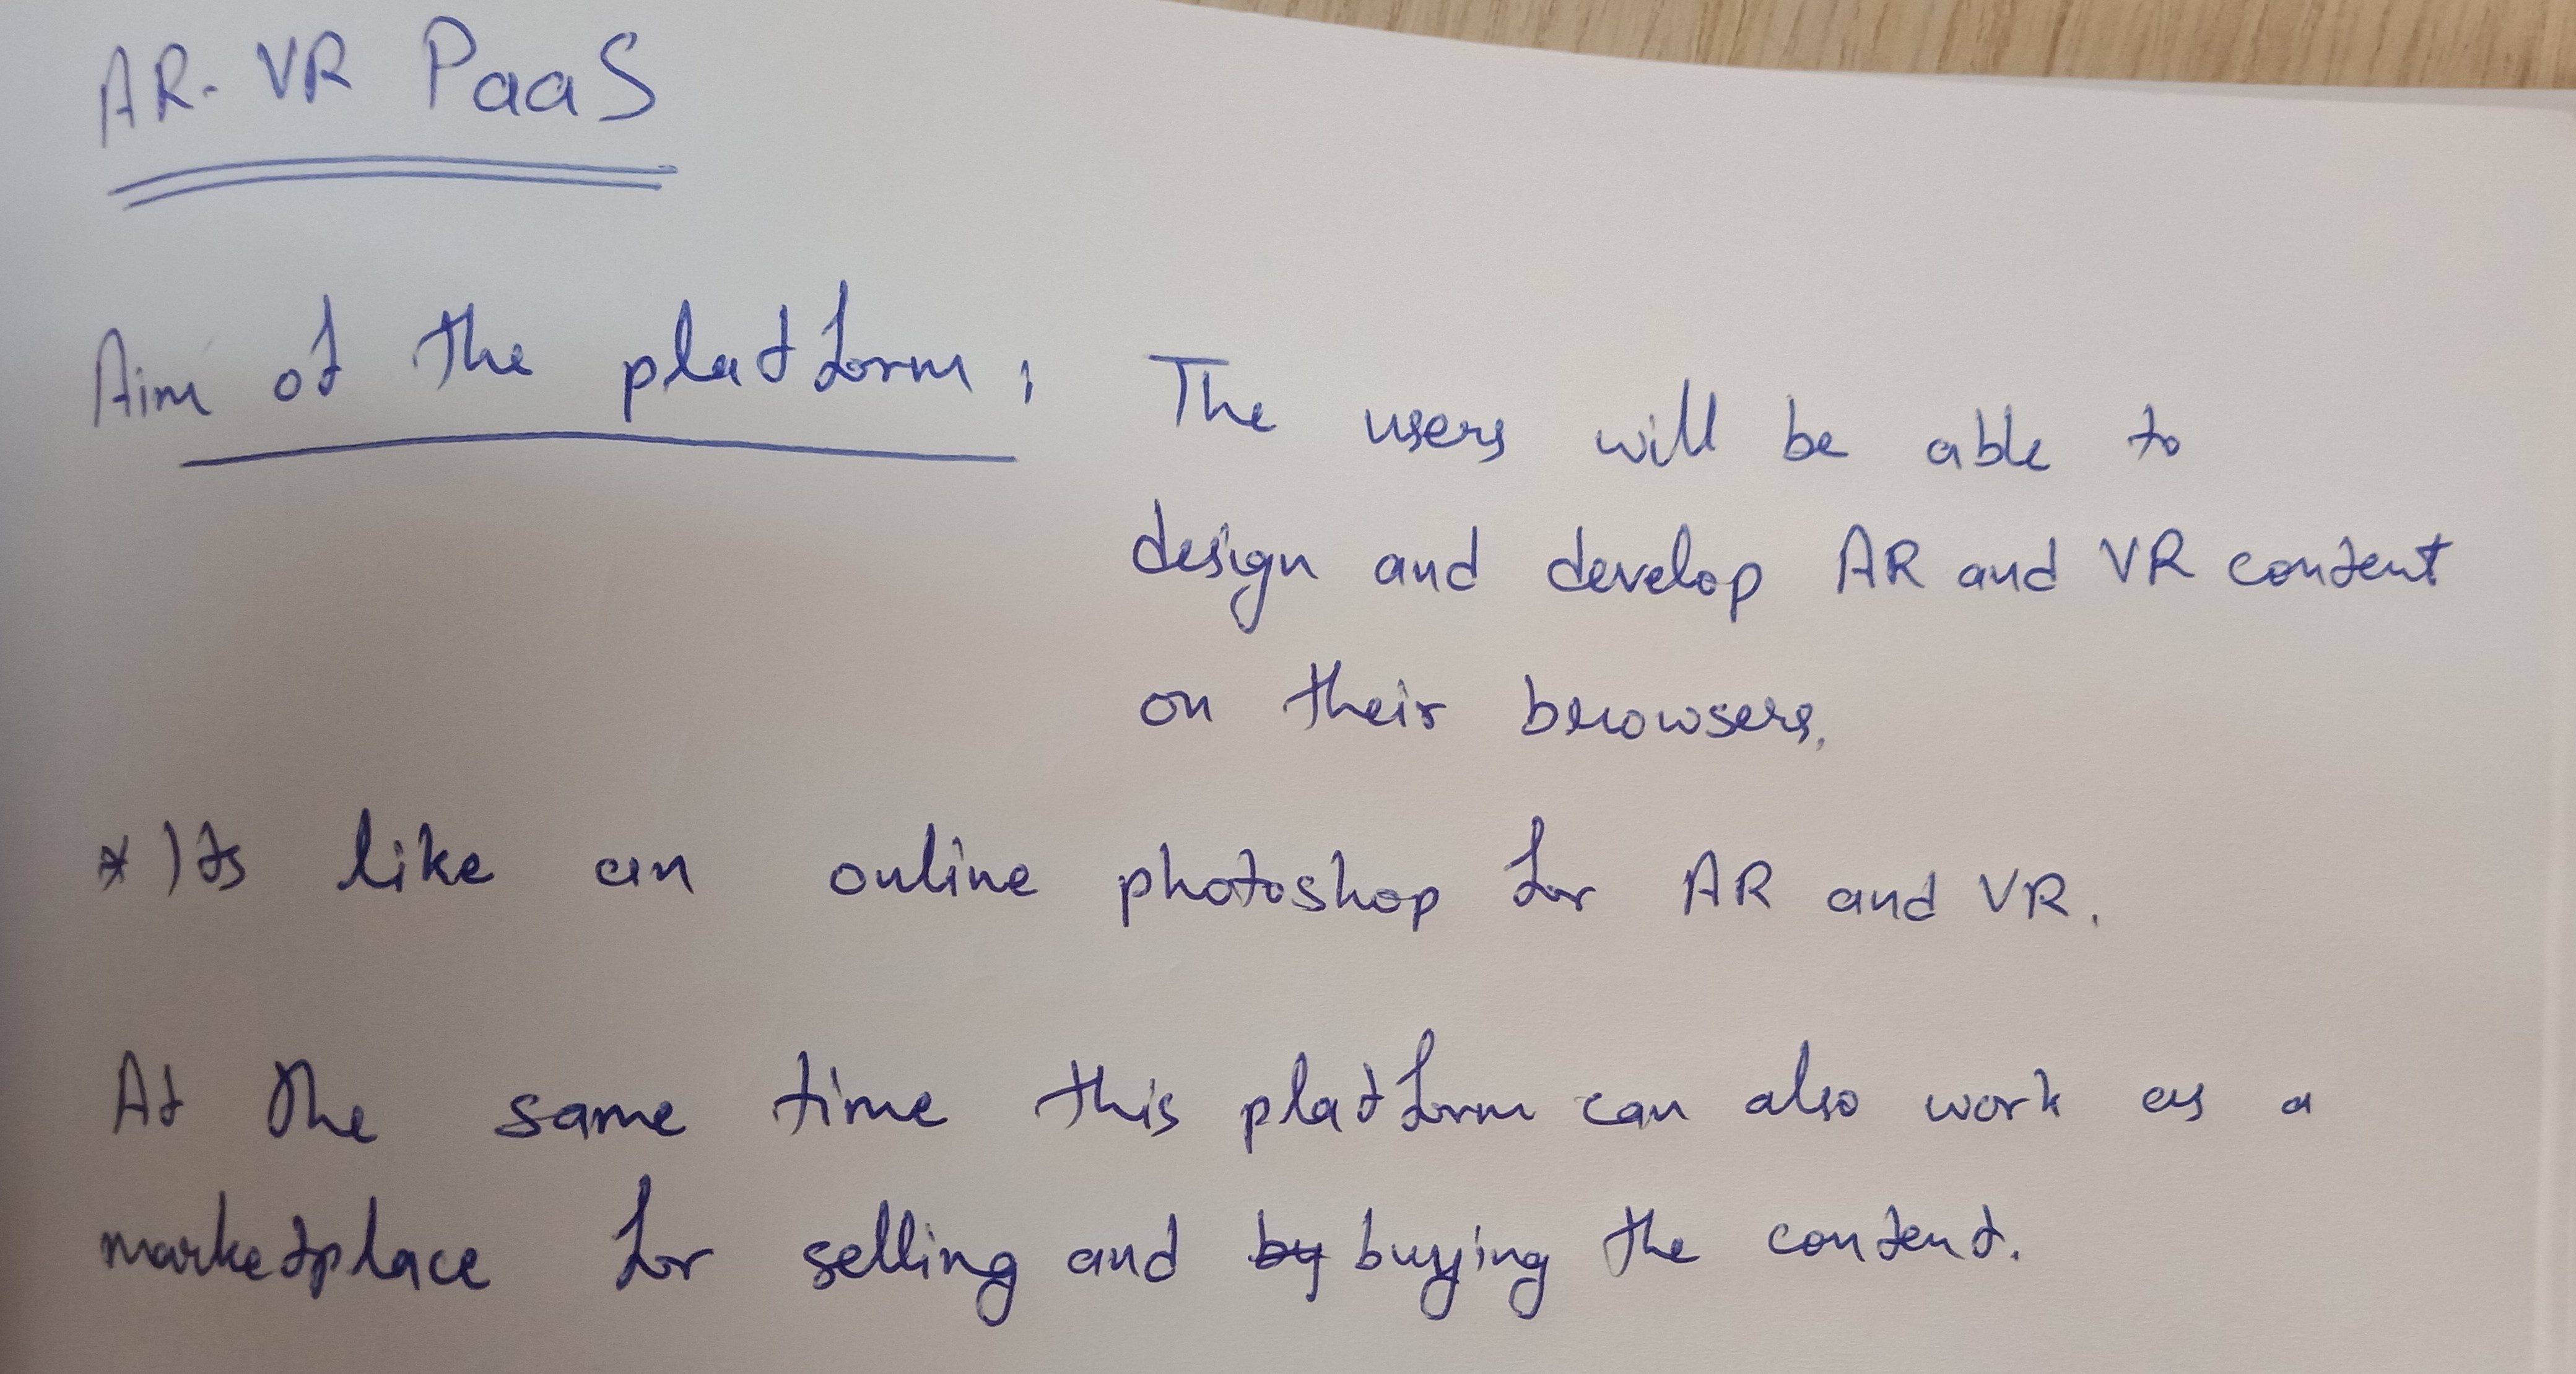 AR-VR PaaS
Aim of the platform: The users will be able to
design and develop AR and VR content
on their browsers.
* Its like an online photoshop for AR and VR.
At the same time this platform can also work as a
marketplace for selling and by buying the content.